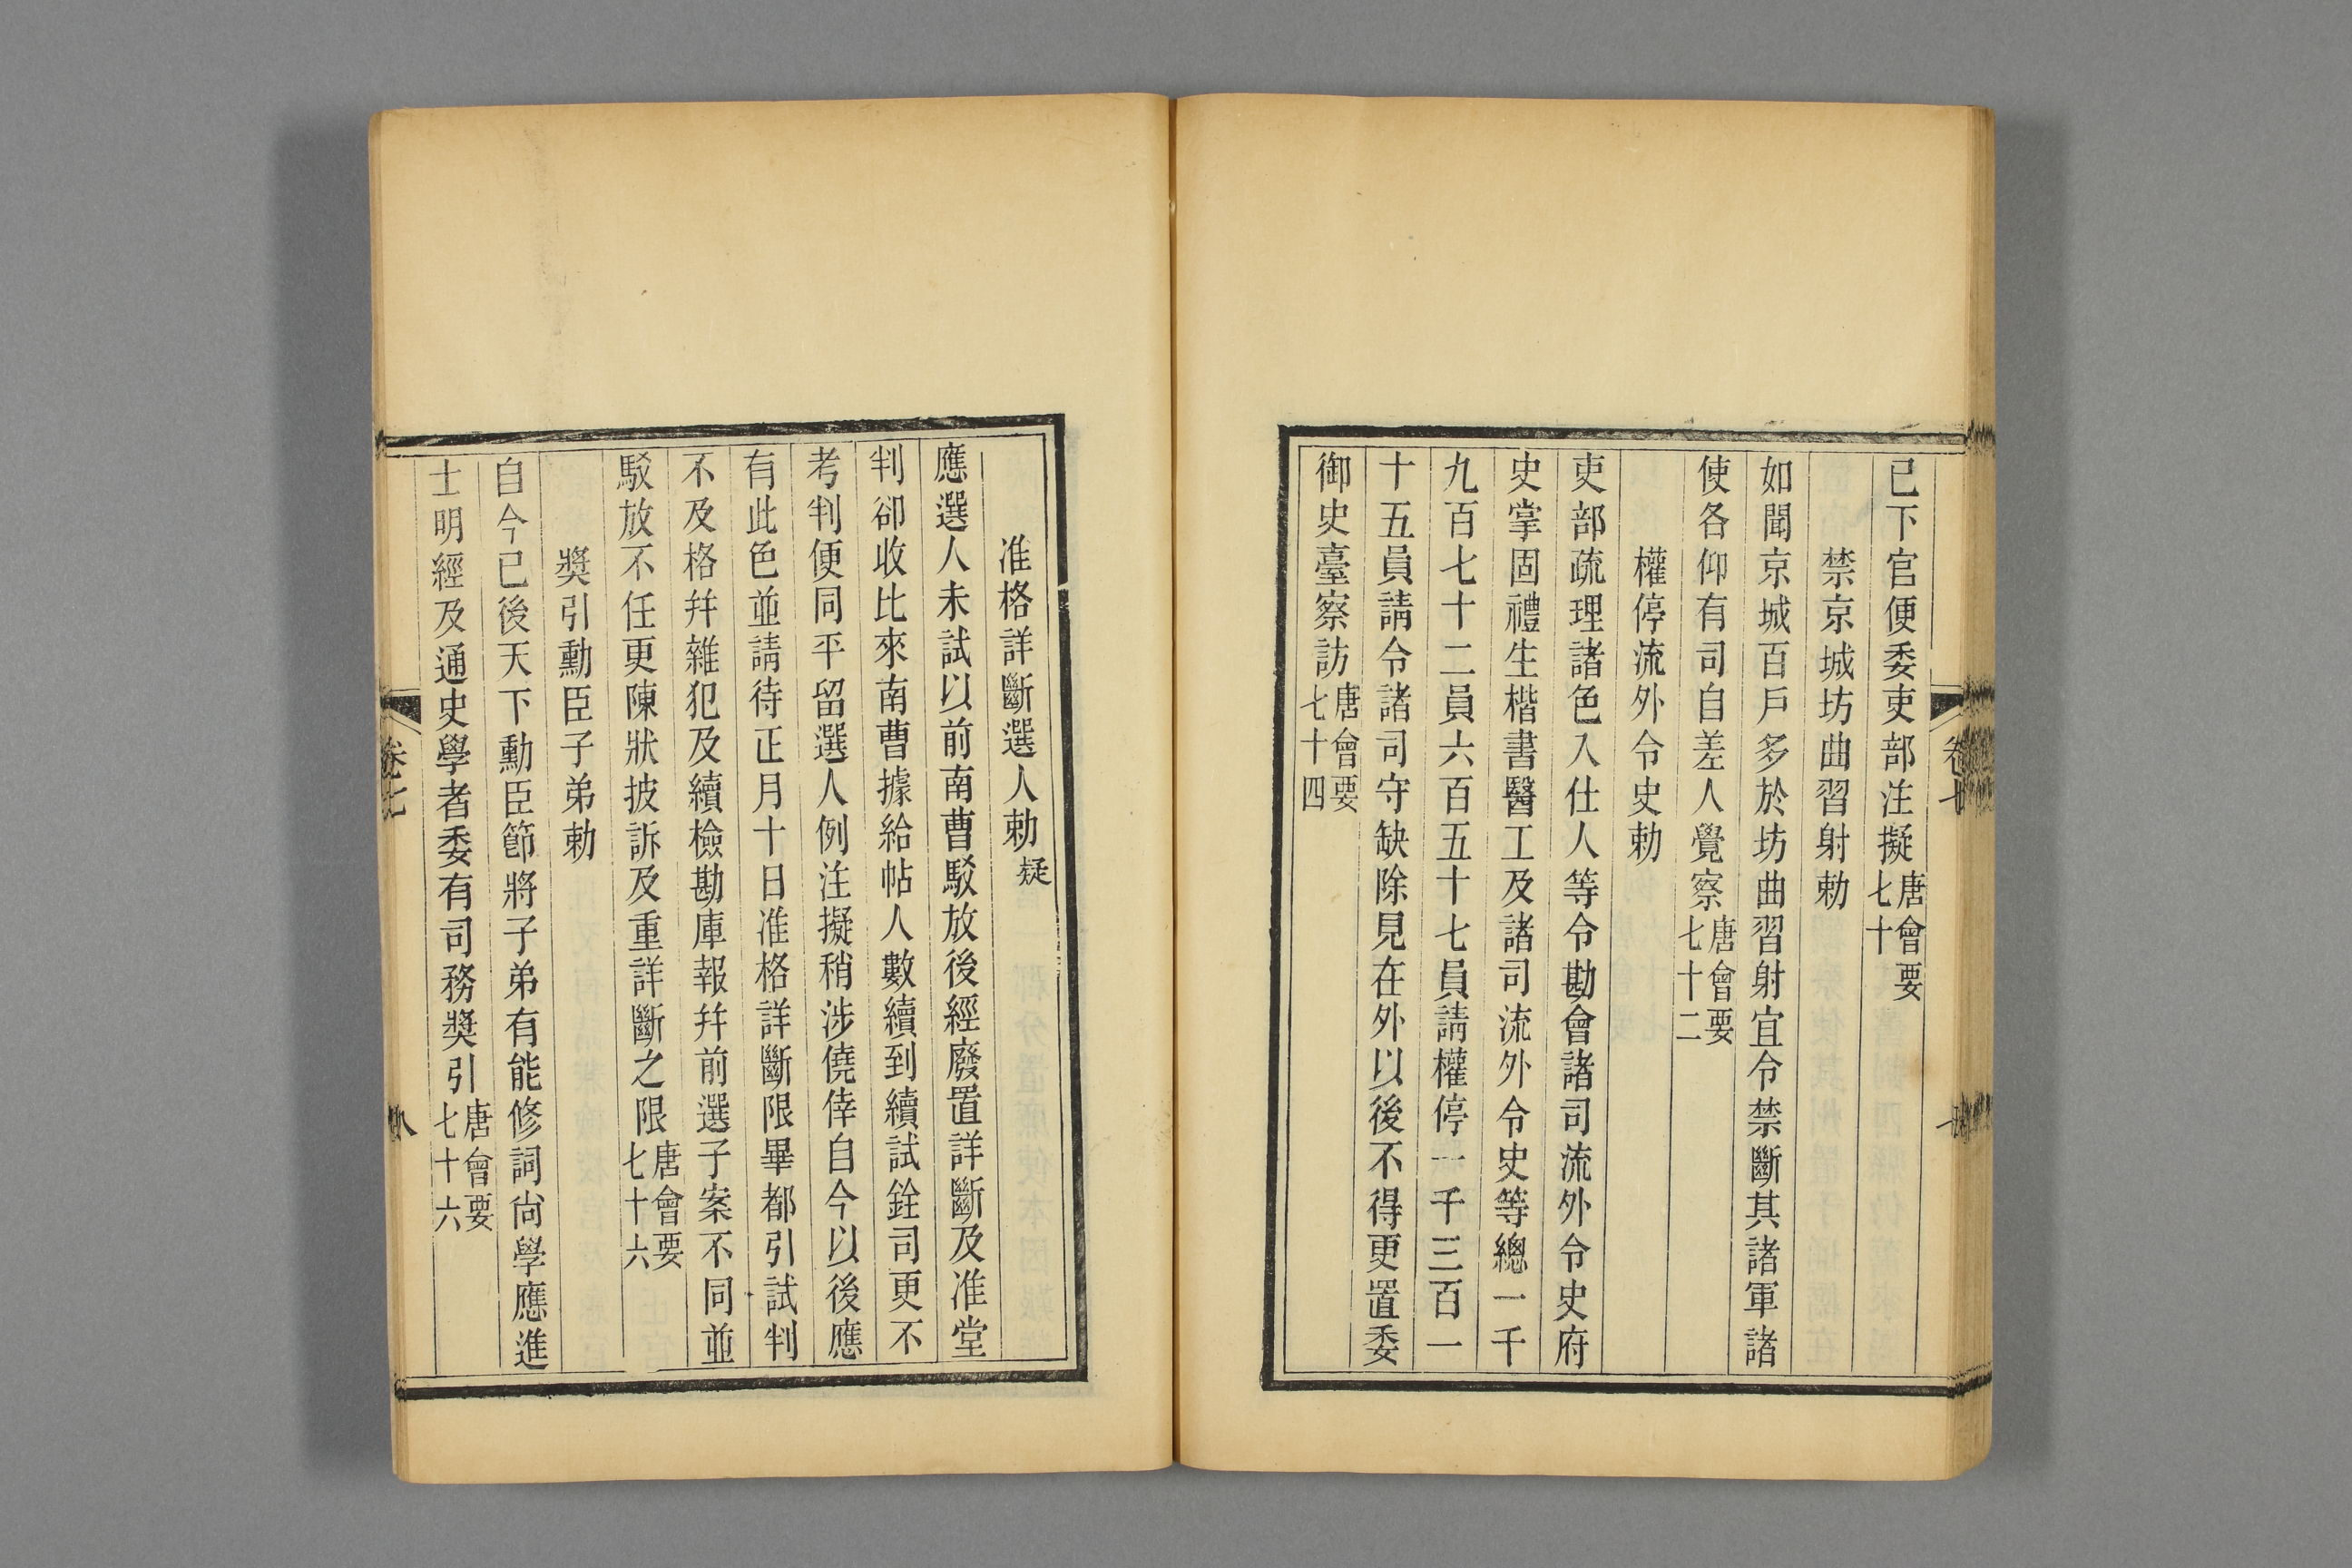 已下官便委吏部注擬唐會要七十
禁京城坊曲習射勅
如聞京城百戶多於坊曲習射宜令禁斷其諸軍諸
使各仰有司自差人覺察唐會要七十二
權停流外令史勅
吏部疏理諸色入仕人等令勘會諸司流外令史府
史掌固禮生楷書醫工及諸司流外令史等總一千
九百七十二員六百五十七員請權停一千三百一
十五員請令諸司守缺除見在外以後不得更置委
御史臺察訪唐會要七十四
准格詳斷選人勅擬
應選人未試以前南曹駁放後經廢置詳斷及准堂
判卻收比來南曹據給帖人數續到續試銓司更不
考判便同平留選人例注擬稍涉僥倖自今以後應
有此色並請待正月十日准格詳斷限畢都引試判
不及格幷雜犯及續檢勘庫報幷前選子案不同並
駁放不任更陳狀披訴及重詳斷之限唐會要七十六
獎引勳臣子弟勅
自今已後天下勳臣節將子弟有能修詞尙學應進
士明經及通史學者委有司務獎引唐會要七十六
卷七
八